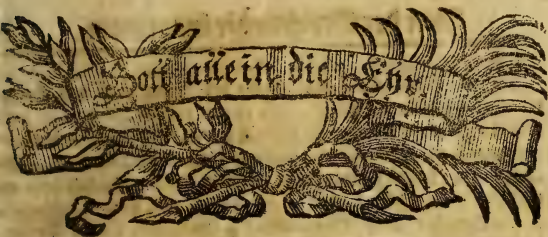 Gott allein die Ehr.